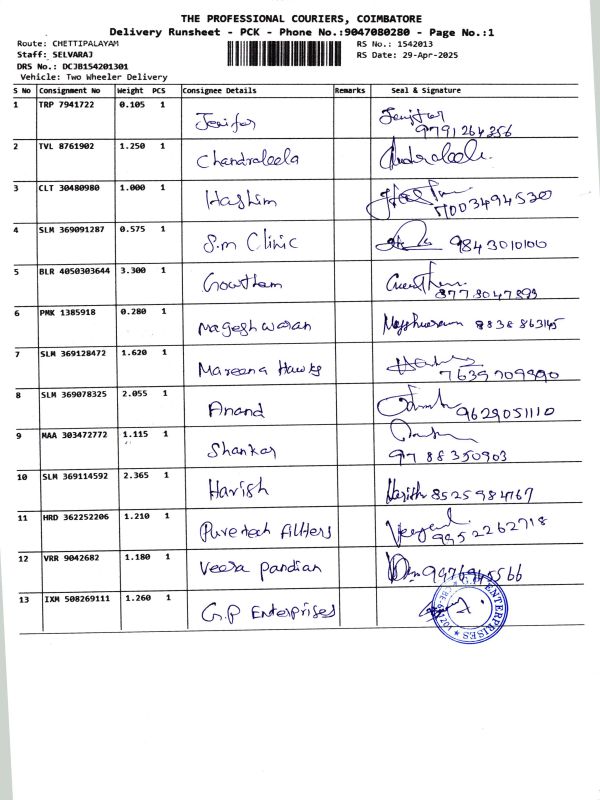 THE PROFESSIONAL COURIERS, COIMBATORE
Delivery Runsheet - PCK - Phone No.:9047080280 - Page No.:1
Route: CHETTIPALAYAM
RS No.: 1542013
Staff: SELVARAJ
RS Date: 29-Apr-2025
DRS No.: DCJB154201301
Vehicle: Two Wheeler Delivery
S No Consignment No Weight PCS Consignee Details Remarks Seal & Signature
1 TRP 7941722 0.105 1 Jenifar
9791264356
2 TVL 8761902 1.250 1 Chandraleela
3 CLT 30480980 1.000 1 Hashim
7003494520
4 SLM 369091287 0.575 1 S.m Clinic 9843010100
5 BLR 4050303644 3.300 1 Gowtham
6 PMK 1385918 0.280 1 Mageshwaran
7 SLM 369128472 1.620 1 Mareena Hawks
8 SLM 369078325 2.055 1 Anand 9629051110
9 MAA 303472772 1.115 1 Shankar
9788350903
10 SLM 369114592 2.365 1 Harish Harish 8525984767
11 HRD 362252206 1.210 1 Puretech Filters
9952262718
12 VRR 9042682 1.180 1 Veera pandian
13 IXM 508269111 1.260 1 G.P Enterprises
ENTERPRISES